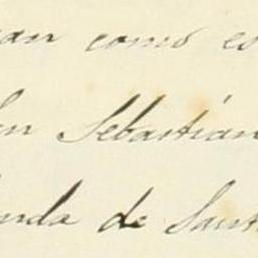 an como es
San Sebastián
nda de Sant